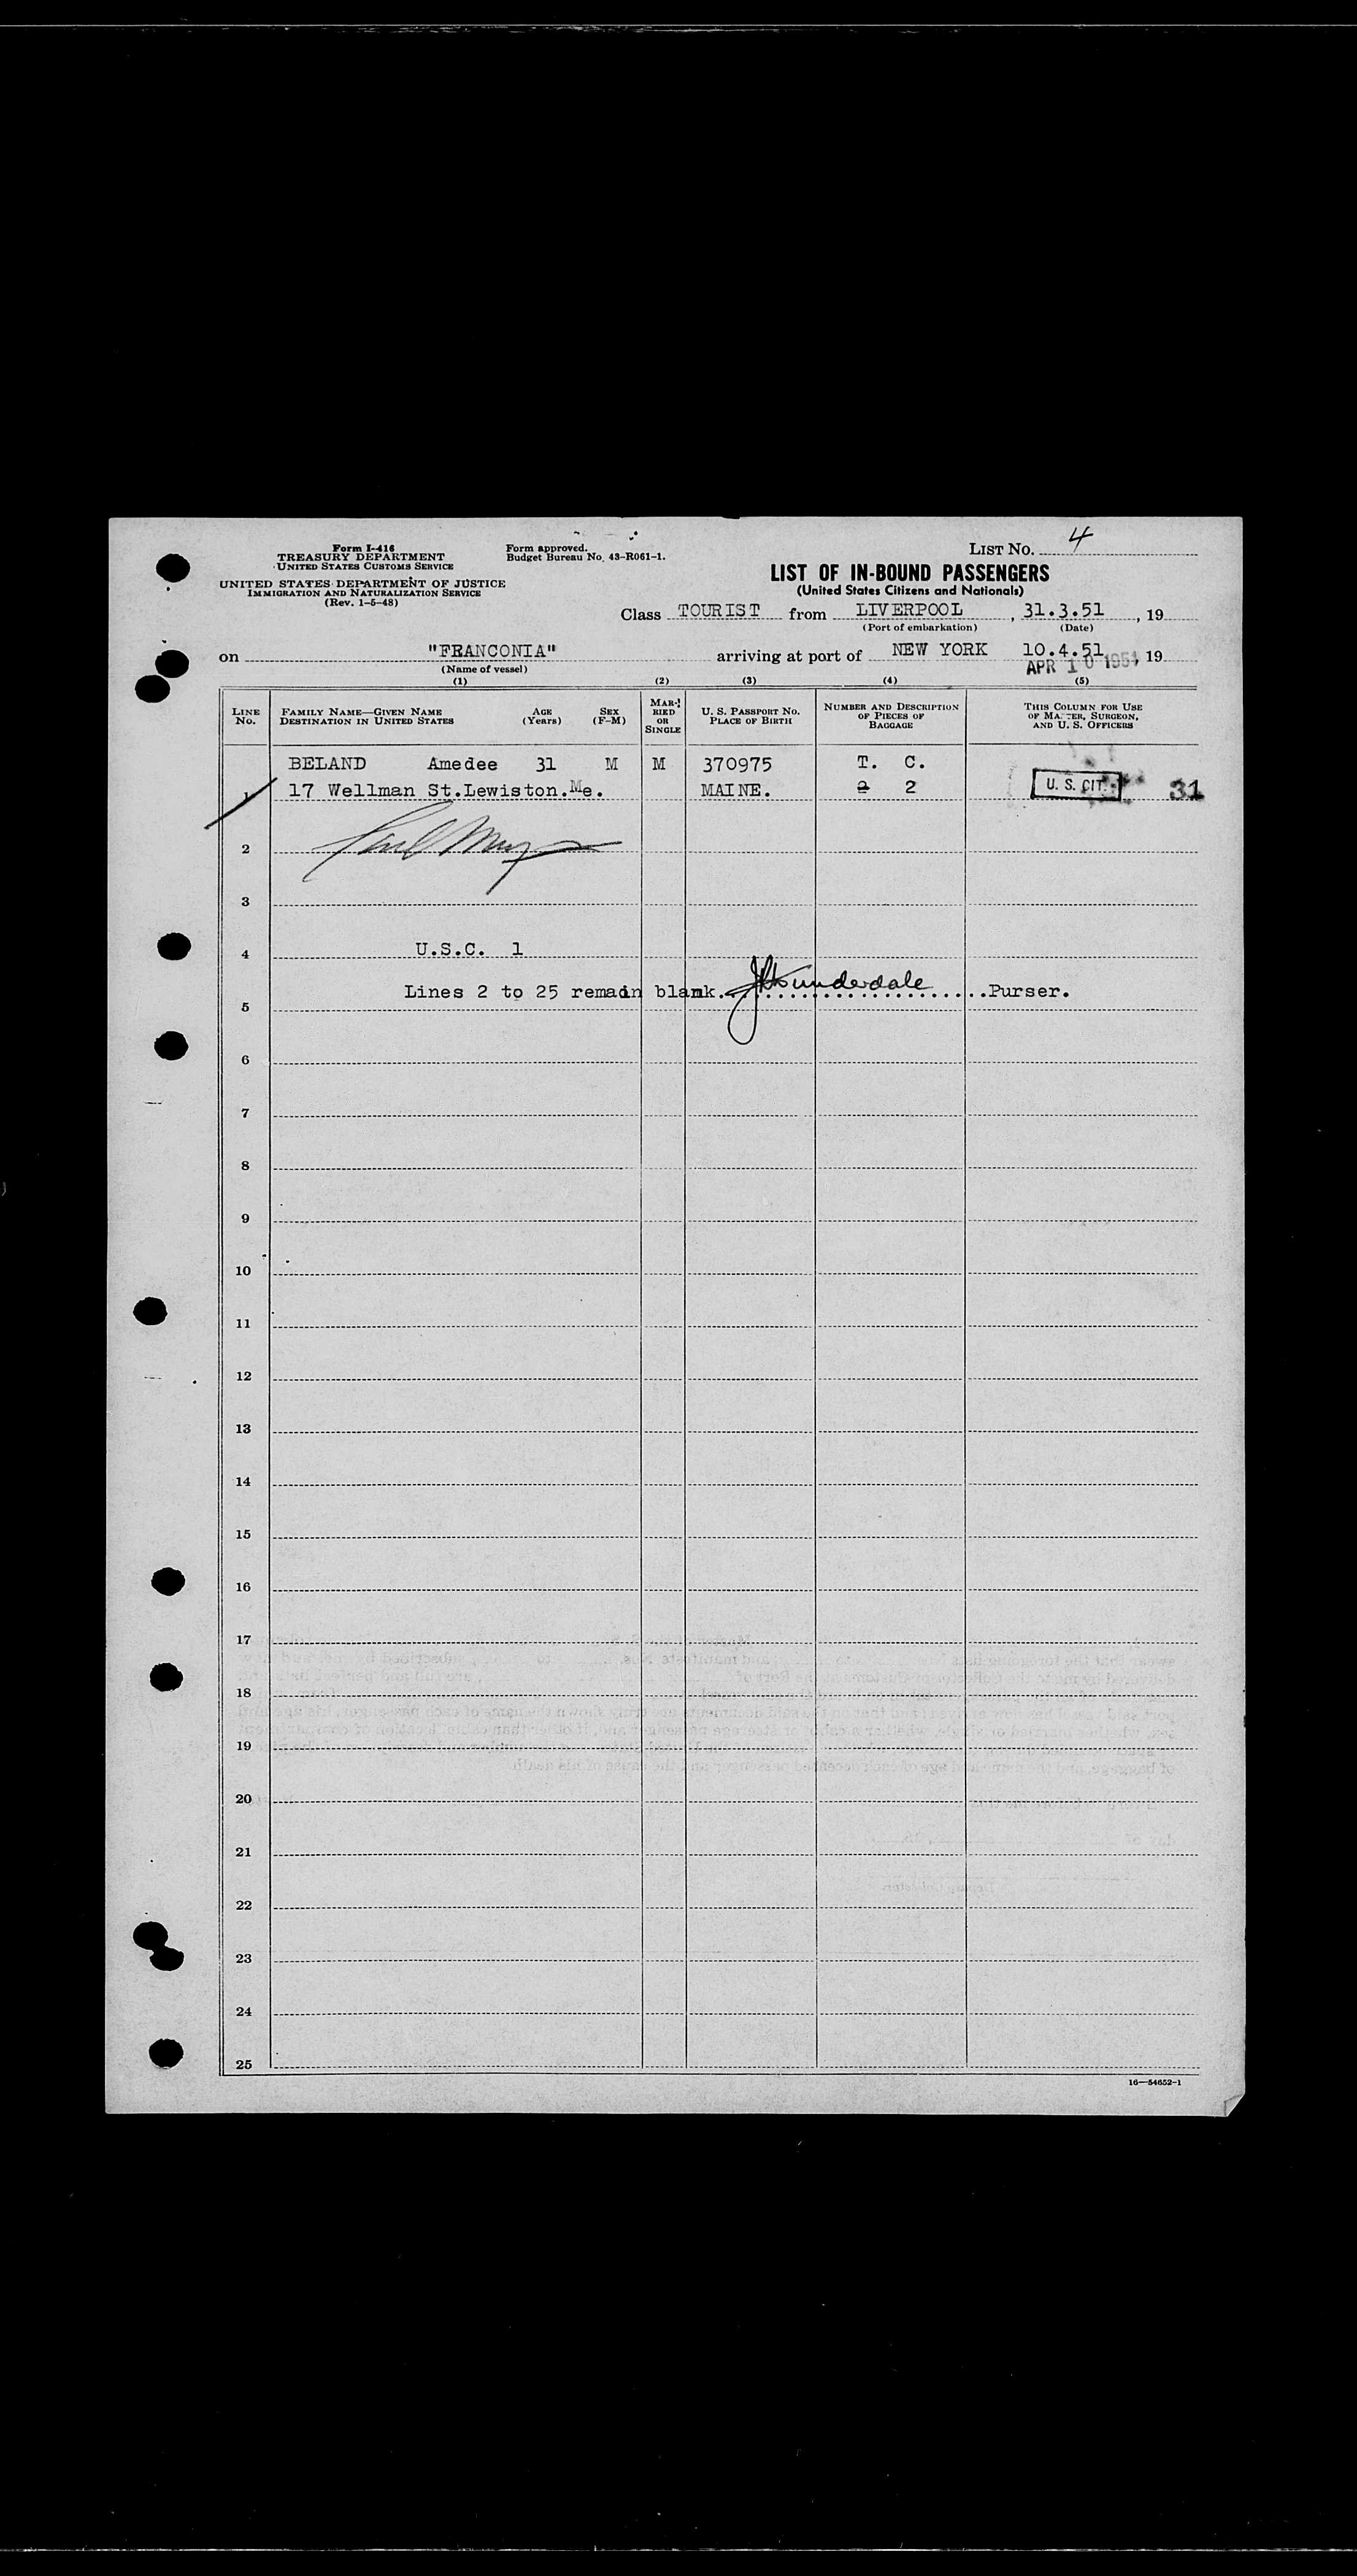 Form I-416
TREASURY DEPARTMENT
UNITED STATES CUSTOMS SERVICE
UNITED STATES DEPARTMENT OF JUSTICE
IMMIGRATION AND NATURALIZATION SERVICE
(Rev. 1-5-48)
Form approved.
Budget Bureau No. 43-R061-1.
LIST NO. 4
LIST OF IN-BOUND PASSENGERS
(United States Citizens and Nationals)
Class TOURIST from LIVERPOOL, 31.3.51, 19
(Port of embarkation) (Date)
on "FRANCONIA" arriving at port of NEW YORK 10.4.51, 19
(Name of vessel) APR 10 1951
(1) (2) (3) (4) (5)
LINE NO. FAMILY NAME—GIVEN NAME DESTINATION IN UNITED STATES AGE (Years) SEX (F-M) MARRIED OR SINGLE U. S. PASSPORT NO. PLACE OF BIRTH NUMBER AND DESCRIPTION OF PIECES OF BAGGAGE THIS COLUMN FOR USE OF MASTER, SURGEON, AND U. S. OFFICERS
BELAND Amedee 31 M M 370975 T. C.
1 17 Wellman St.Lewiston.Me. MAINE. 2 2 U. S. CIT. 31
2
3
4 U.S.C. 1
Lines 2 to 25 remain blank. Purser.
5
6
7
8
9
10
11
12
13
14
15
16
17
18
19
20
21
22
23
24
25
16—54652-1